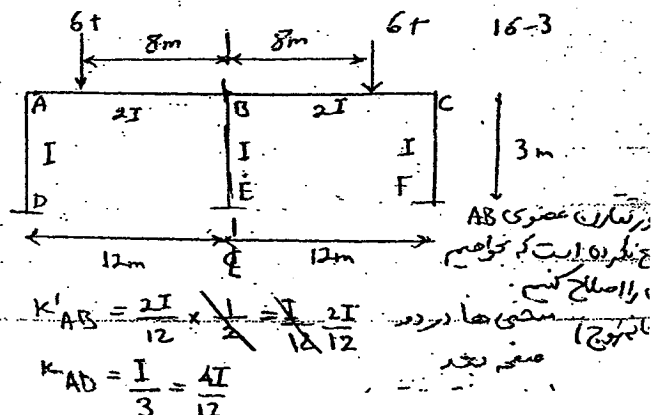 6t 8m 8m 6t 16-3
A 2I B 2I C
I I I 3m
D E F
12m 12m
℄
AB عضوی
است که بخواهیم
را اصلاح کنیم
منحنی ها در دو
صفحه بعد
K'AB = 2I/12 × 1/2 = I/12 2I/12
KAD = I/3 = 4I/12